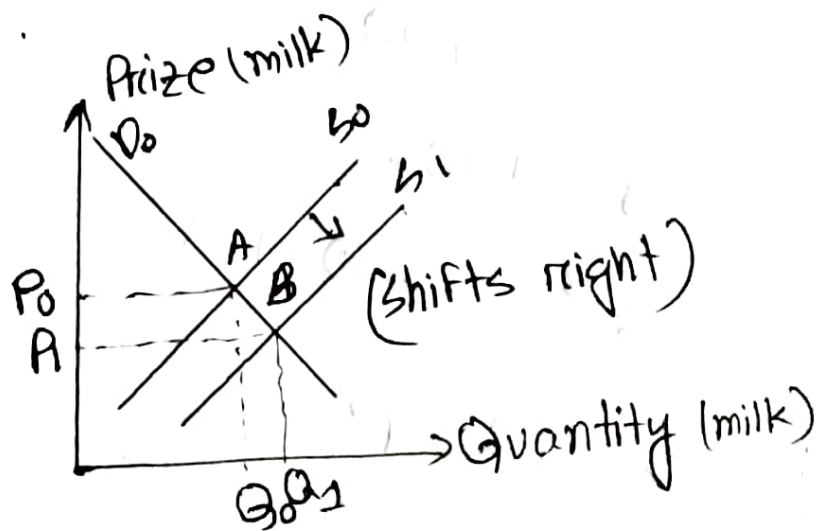 Prize (milk)
D0
S0
S1
A
P0
B
(shifts right)
P1
Quantity (milk)
Q0 Q1